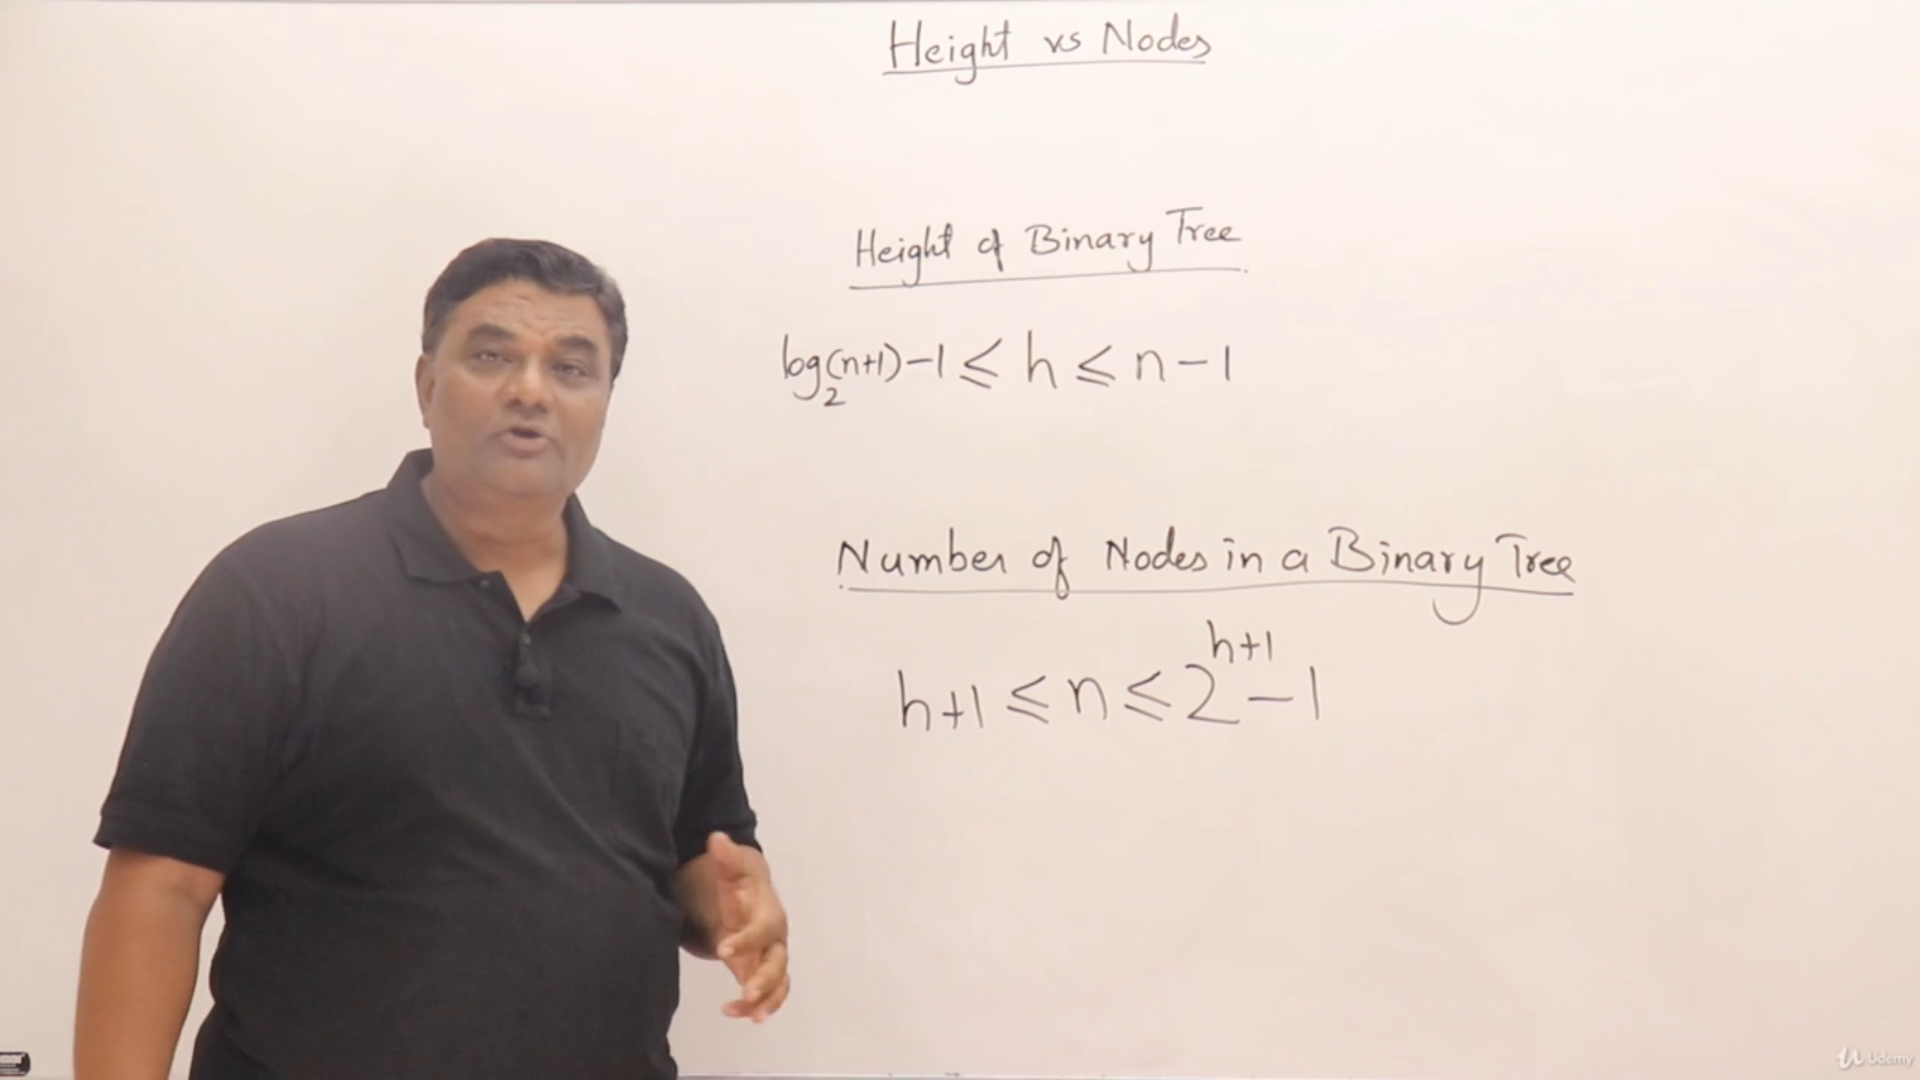 Height vs Nodes
Height of Binary Tree
log₂(n+1)-1 ≤ h ≤ n-1
Number of Nodes in a Binary Tree
h+1 ≤ n ≤ 2^{h+1} - 1
Udemy